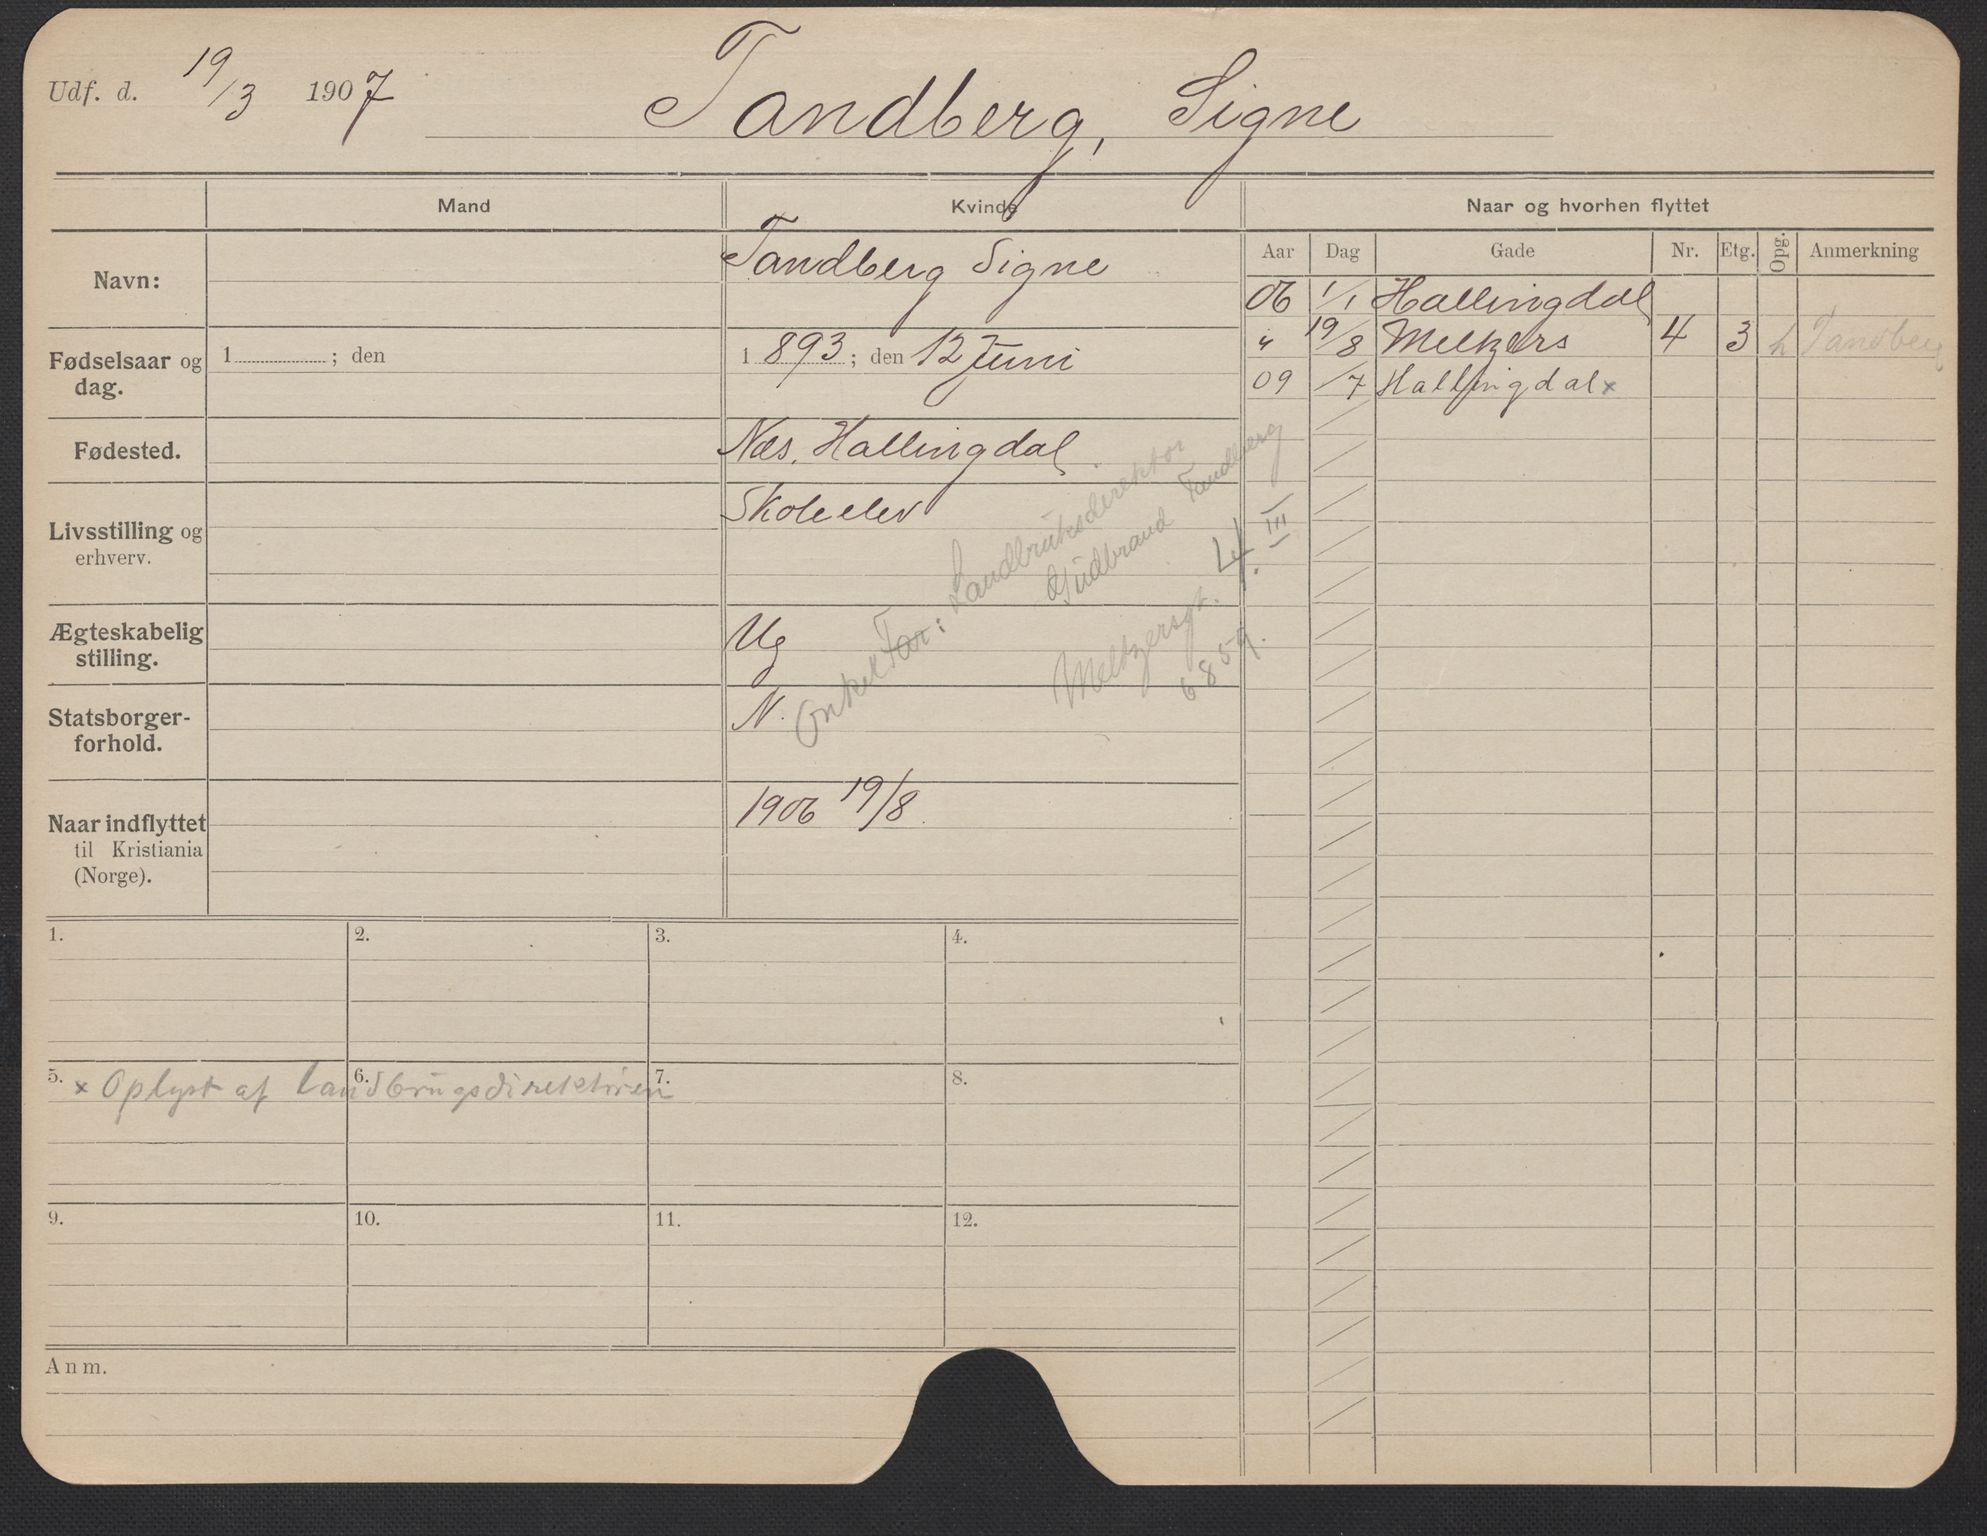 Udf. d. 19/3 1907 Tandberg, Signe
Mand Kvinde Naar og hvorhen flyttet
Aar Dag Gade Nr. Etg. Opg. Anmerkning
Navn: Tandberg Signe
06 1/1 Hallingdal
" 19/8 Meltzers 4 3 h Tandberg
09 /7 Hallingdal x
Fødselsaar og dag. 1 ; den 1893 ; den 12 Juni
Fødested. Næs, Hallingdal.
Livsstilling og
erhverv.
Skoleelev
Ægteskabelig
stilling.
Ug
Statsborger-
forhold.
N.
Onkel Far: Landbruksdirektør
Gudbrand Tandberg
Meltzersgt. 4. III
6859.
Naar indflyttet
til Kristiania
(Norge).
1906 19/8
1. 2. 3. 4.
5. 6. 7. 8.
x Oplyst af Landbrugsdirektøren
9. 10. 11. 12.
Anm.